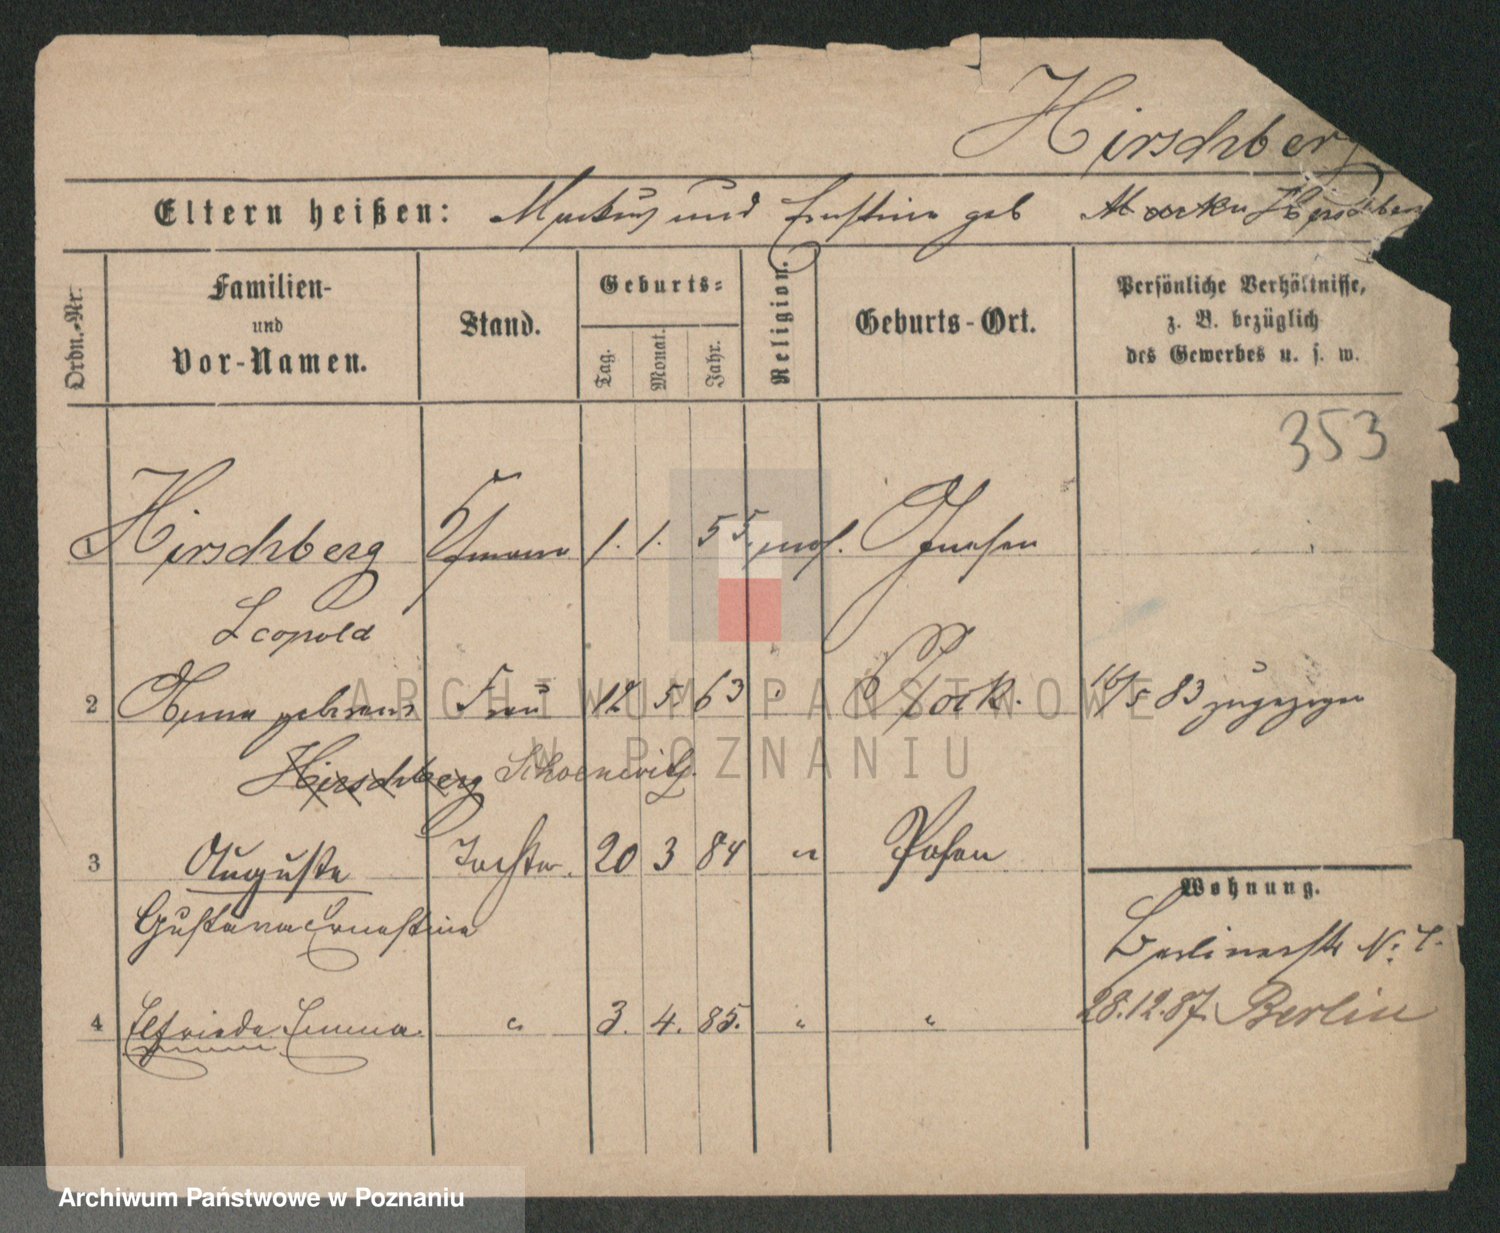 Hirschberg
Eltern heißen: Markus und Ernstine geb Hirschberg
Ordn.-Nr.
Familien-
und
Vor-Namen.
Stand.
Geburts-
Tag.
Monat.
Jahr.
Religion.
Geburts-Ort.
Persönliche Verhältnisse,
z. B. bezüglich
des Gewerbes u. s. w.
353
1 Hirschberg Kfmann 1. 1. 55 mos. Gnesen
Leopold
2 geborene Frau 12 5 63 " 16/5 83 zugezogen
Hirschberg Schoenwitz.
3 Auguste Tochter. 20 3 84 " Posen
Gustava Ernestine
Wohnung.
Berlinerstr No
4 Elfriede Emma. " 3. 4. 85. " "
28.12.87. Berlin
ARCHIWUM PAŃSTWOWE
W POZNANIU
Archiwum Państwowe w Poznaniu